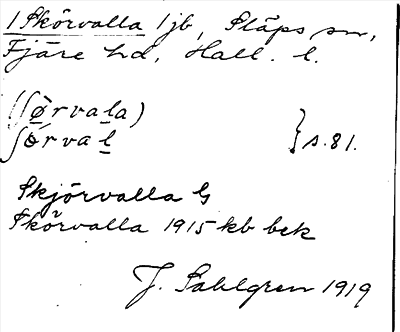 1 Skörvalla 1 jb, Släps sn,
Fjäre hd, Hall. l.
(ʃø̀rvala)
ʃørval } s. 81.
Skjörvalla G
Skörvalla 1915 kb bek
J. Sahlgren 1919